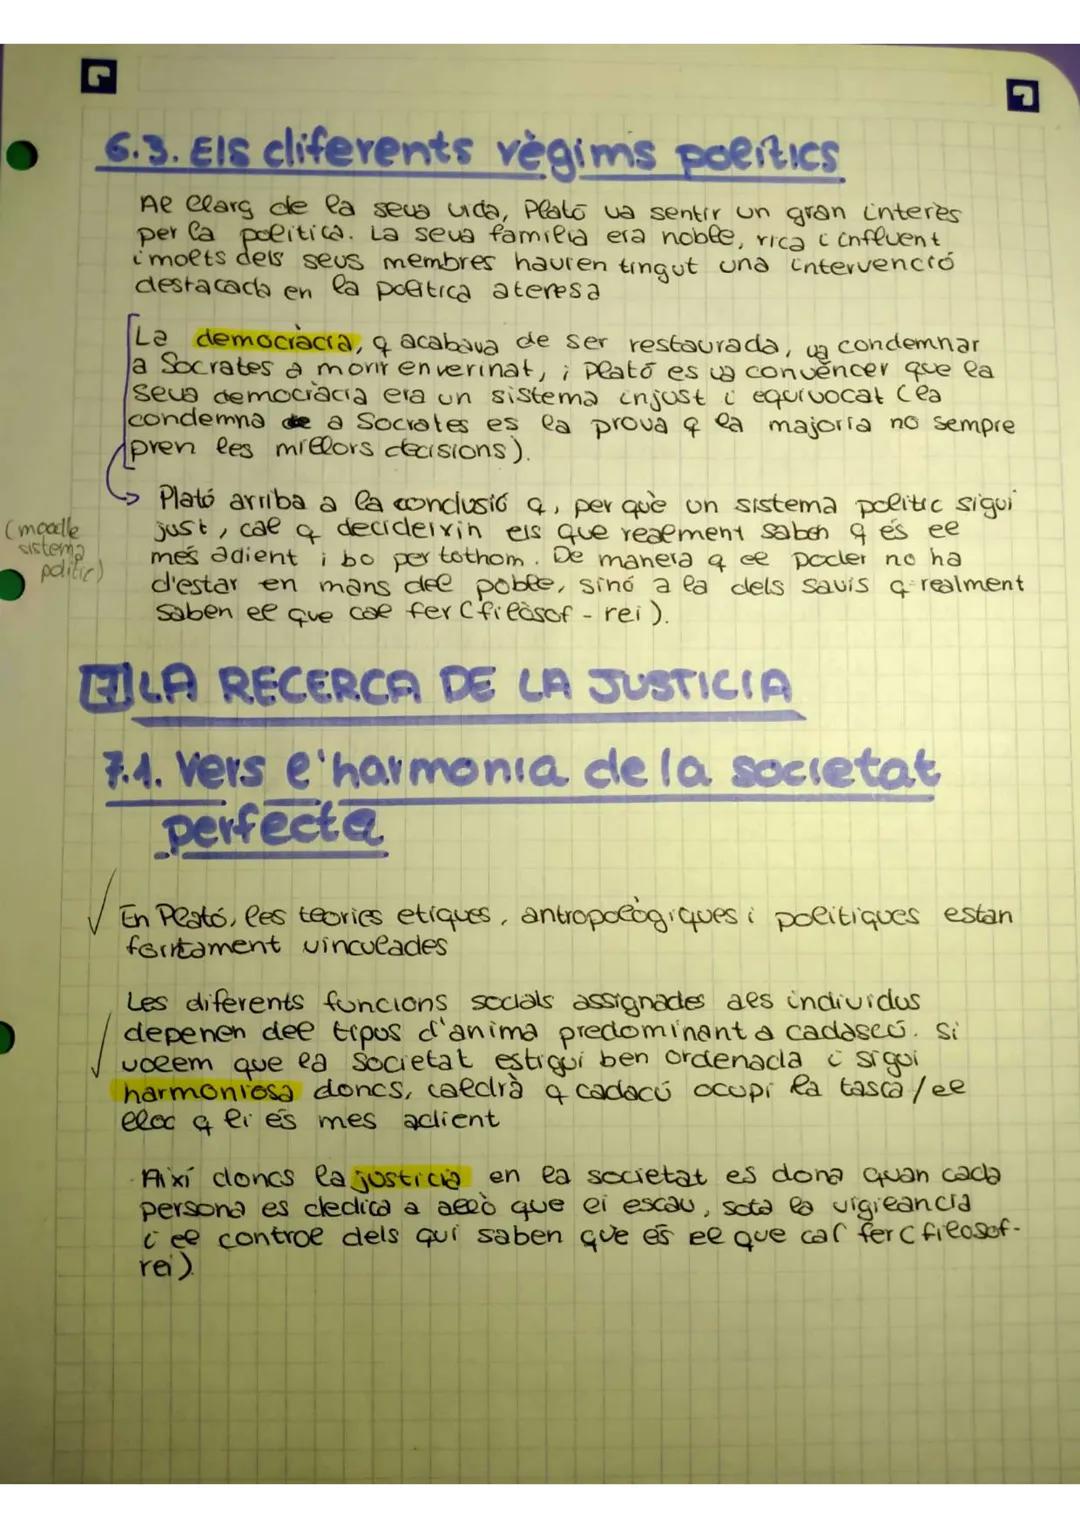 6.3. Els diferents règims polítics
Al llarg de la seva vida, Plató va sentir un gran interès
per la política. La seva família era noble, rica i influent
i molts dels seus membres havien tingut una intervenció
destacada en la política atenesa
La democràcia, q acabava de ser restaurada, va condemnar
a Socrates a morir enverinat, i Plató es va convèncer que la
seva democràcia era un sistema injust i equivocat (la
condemna de a Socrates es la prova q la majoria no sempre
pren les millors decisions).
Plató arriba a la conclusió q, per què un sistema polític sigui
just, cal q decideixin els que realment saben q és el
més adient i bo per tothom. De manera q el poder no ha
d'estar en mans del poble, sinó a la dels savis q realment
saben el que cal fer (filòsof - rei).
(modle
sistema
polític)
7 LA RECERCA DE LA JUSTICIA
7.1. Vers l'harmonia de la societat
perfecta
En Plató, les teories etiques, antropològiques i polítiques estan
fortament vinculades
Les diferents funcions socials assignades als individus
depenen del tipus d'anima predominant a cadascú. Si
volem que la societat estigui ben ordenada i sigui
harmoniosa doncs, caldrà q cadacú ocupi la tasca / el
lloc q li és mes adient
Així doncs la justicia en la societat es dona quan cada
persona es dedica a allò que li escau, sota la vigilancia
i el control dels qui saben què és el que cal fer (filosof-
rei)